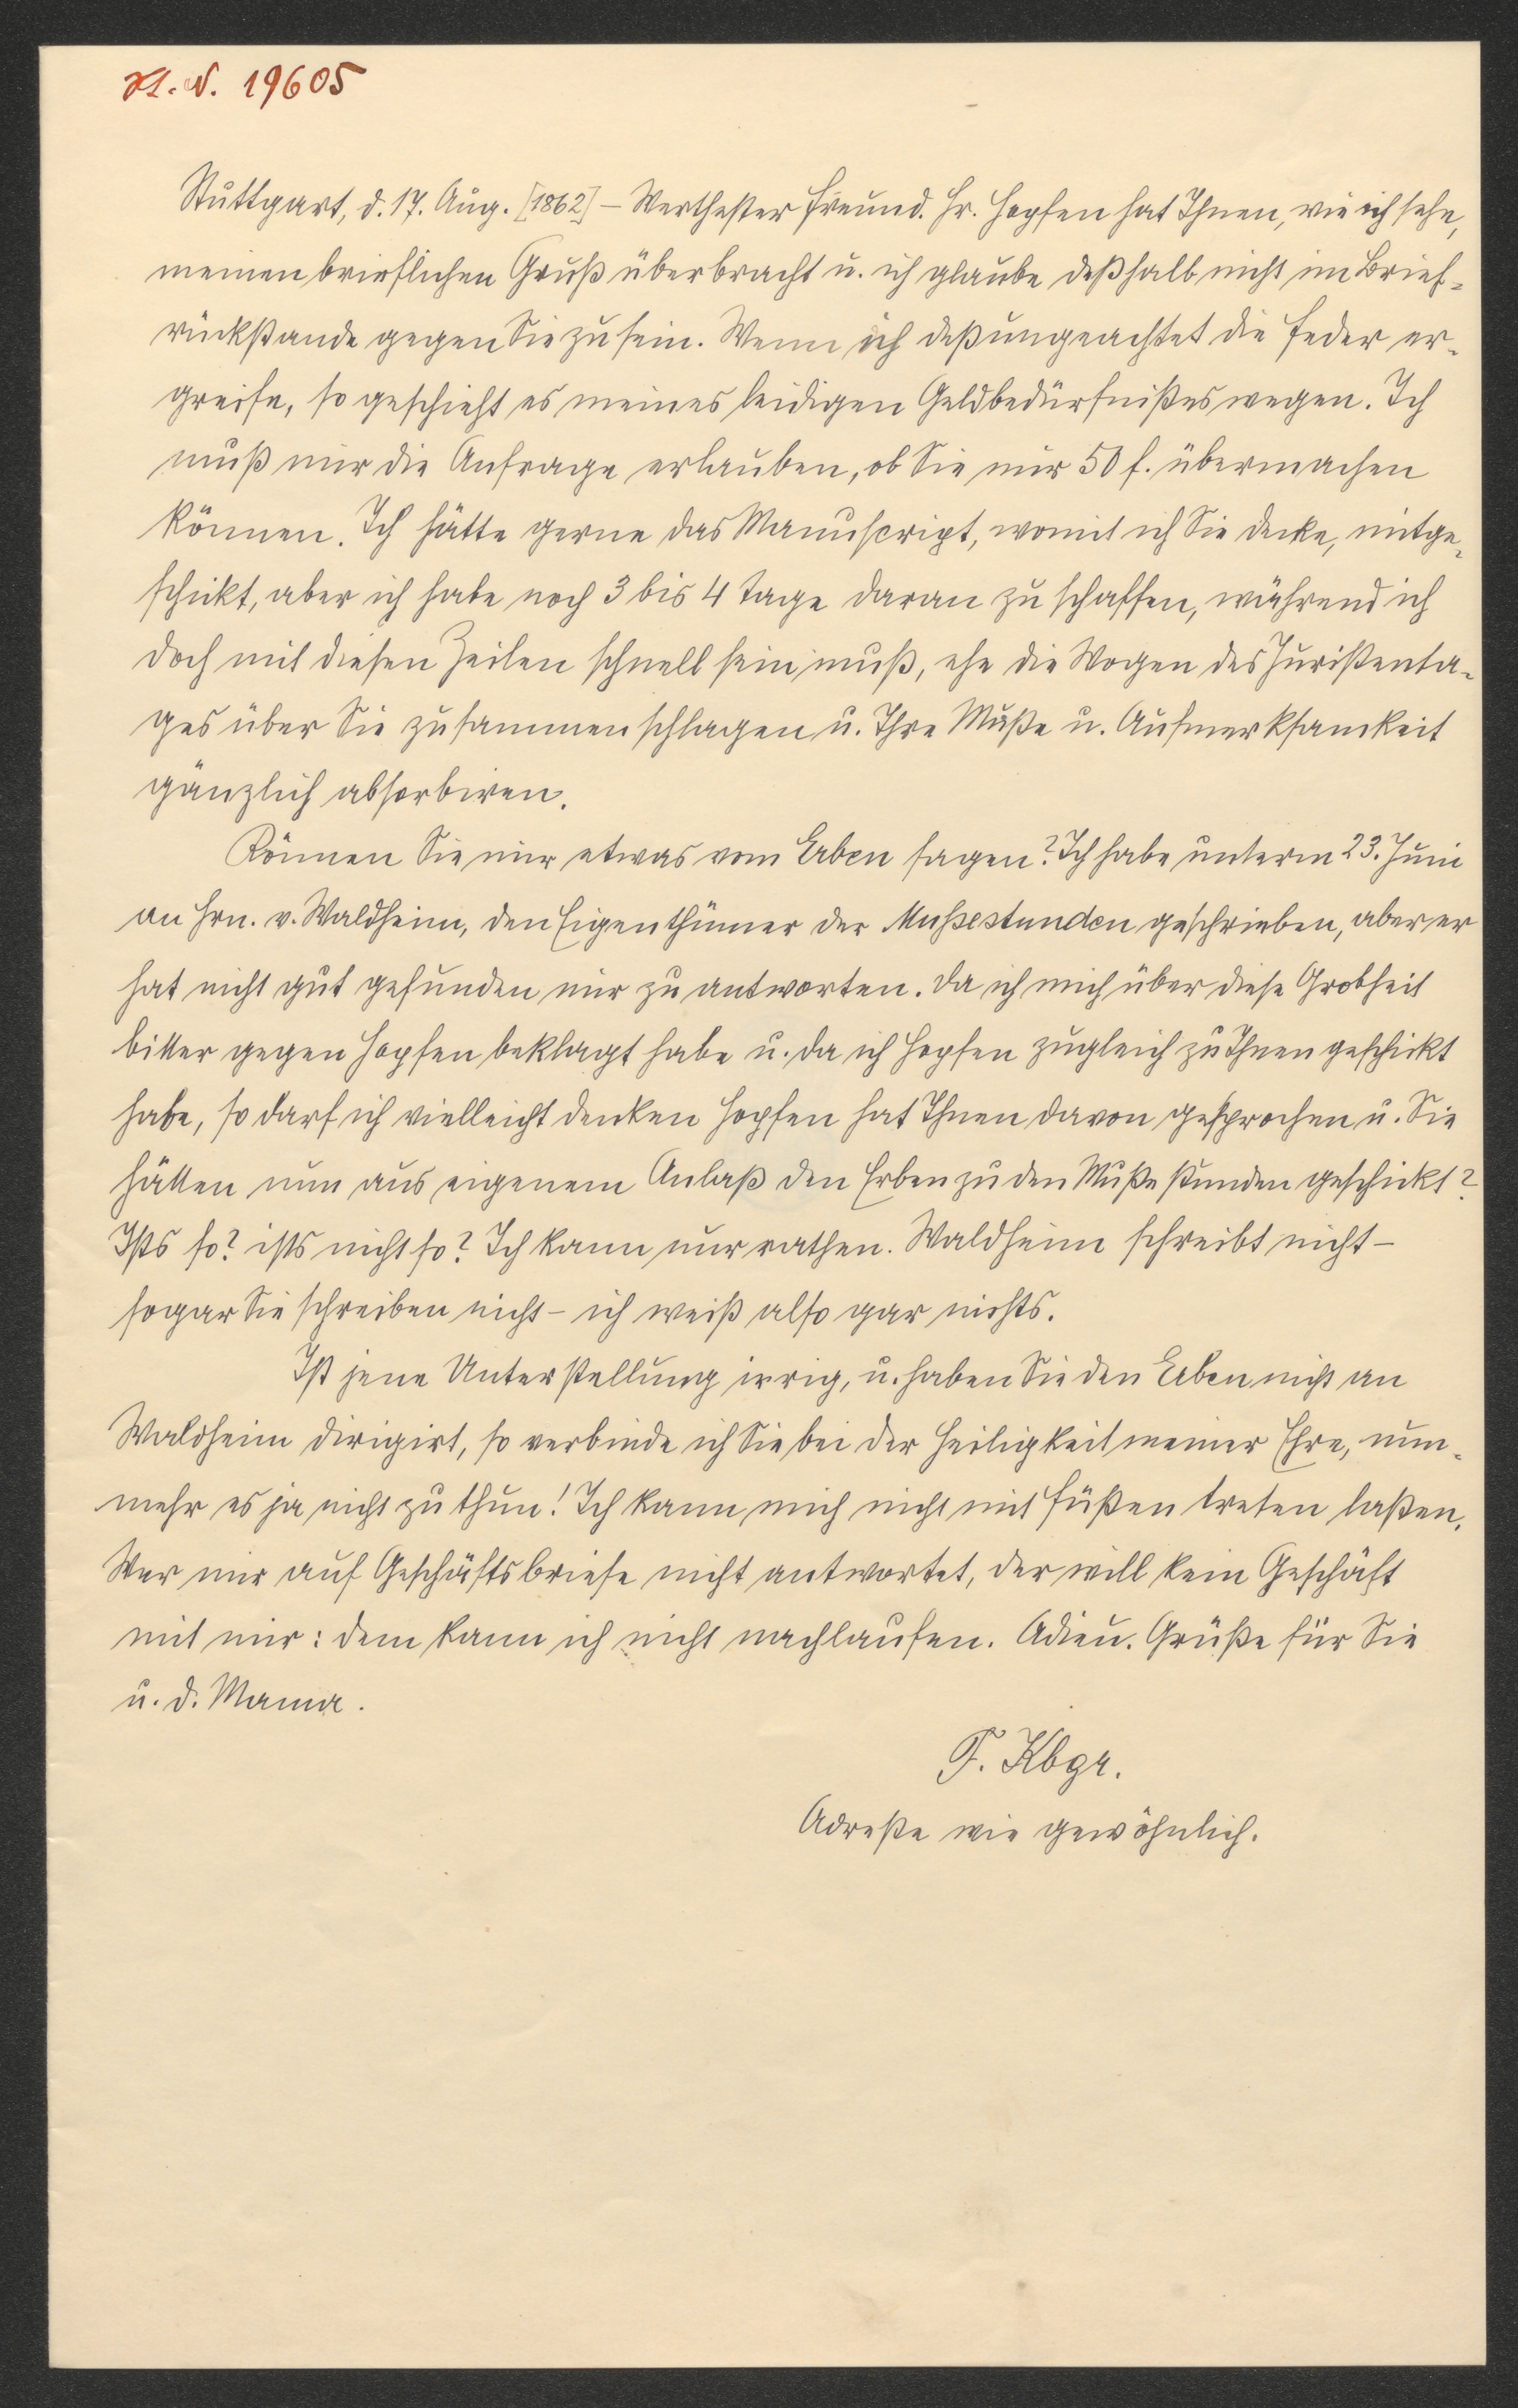 H. N. 19605
Stuttgart, d. 17. Aug. [1862] – Werthester Freund. Hr. Hopfen hat Ihnen, wie ich sehe,
meinen brieflichen Gruß überbracht u. ich glaube deßhalb nicht im Brief-
rückstande gegen Sie zu sein. Wenn ich deßungeachtet die Feder er-
greife, so geschieht es meines leidigen Geldbedürfnißes wegen. Ich
muß mir die Anfrage erlauben, ob Sie mir 50 f. übermachen
können. Ich hätte gerne das Manuscript, womit ich Sie decke, mitge-
schickt, aber ich habe noch 3 bis 4 Tage daran zu schaffen, während ich
doch mit diesen Zeilen schnell sein muß, ehe die Wogen des Juristenta-
ges über Sie zusammenschlagen u. Ihre Muße u. Aufmerksamkeit
gänzlich absorbiren.
Können Sie mir etwas vom Erben sagen? Ich habe unterm 23. Juni
an Hrn. v. Waldheim, den Eigenthümer der Mußestunden geschrieben, aber er
hat nicht gut gefunden mir zu antworten. Da ich mich über diese Grobheit
bitter gegen Hopfen beklagt habe u. da ich Hopfen zugleich zu Ihnen geschickt
habe, so darf ich vielleicht denken Hopfen hat Ihnen davon gesprochen u. Sie
hätten nun aus eigenem Anlaß den Erben zu den Mußestunden geschickt?
Ists so? ists nicht so? Ich kann nur rathen. Waldheim schreibt nicht –
sogar Sie schreiben nicht – ich weiß also gar nichts.
Ist jene Unterstellung irrig, u. haben Sie den Erben nicht an
Waldheim dirigirt, so verbinde ich Sie bei der Heiligkeit meiner Ehre, nun-
mehr es ja nicht zu thun! Ich kann mich nicht mit Füßen treten laßen.
Wer mir auf Geschäftsbriefe nicht antwortet, der will kein Geschäft
mit mir: dem kann ich nicht nachlaufen. Adieu. Grüße für Sie
u. d. Mama.
F. Kbgr.
Adreße wie gewöhnlich.